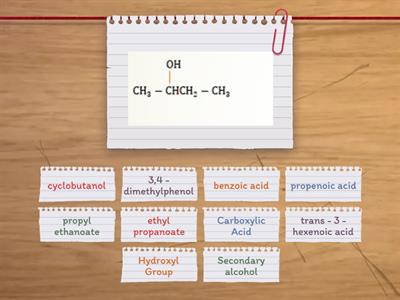 OH
CH₃ – CHCH₂ – CH₃
cyclobutanol
3,4 -
dimethylphenol
benzoic acid
propenoic acid
propyl
ethanoate
ethyl
propanoate
Carboxylic
Acid
trans - 3 -
hexenoic acid
Hydroxyl
Group
Secondary
alcohol